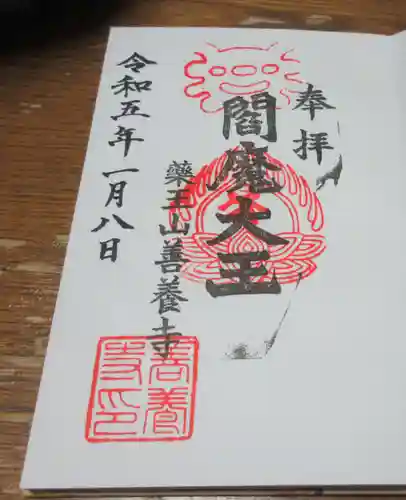 奉拝
閻魔大王
藥王山善養寺
令和五年一月八日
善養
寺印